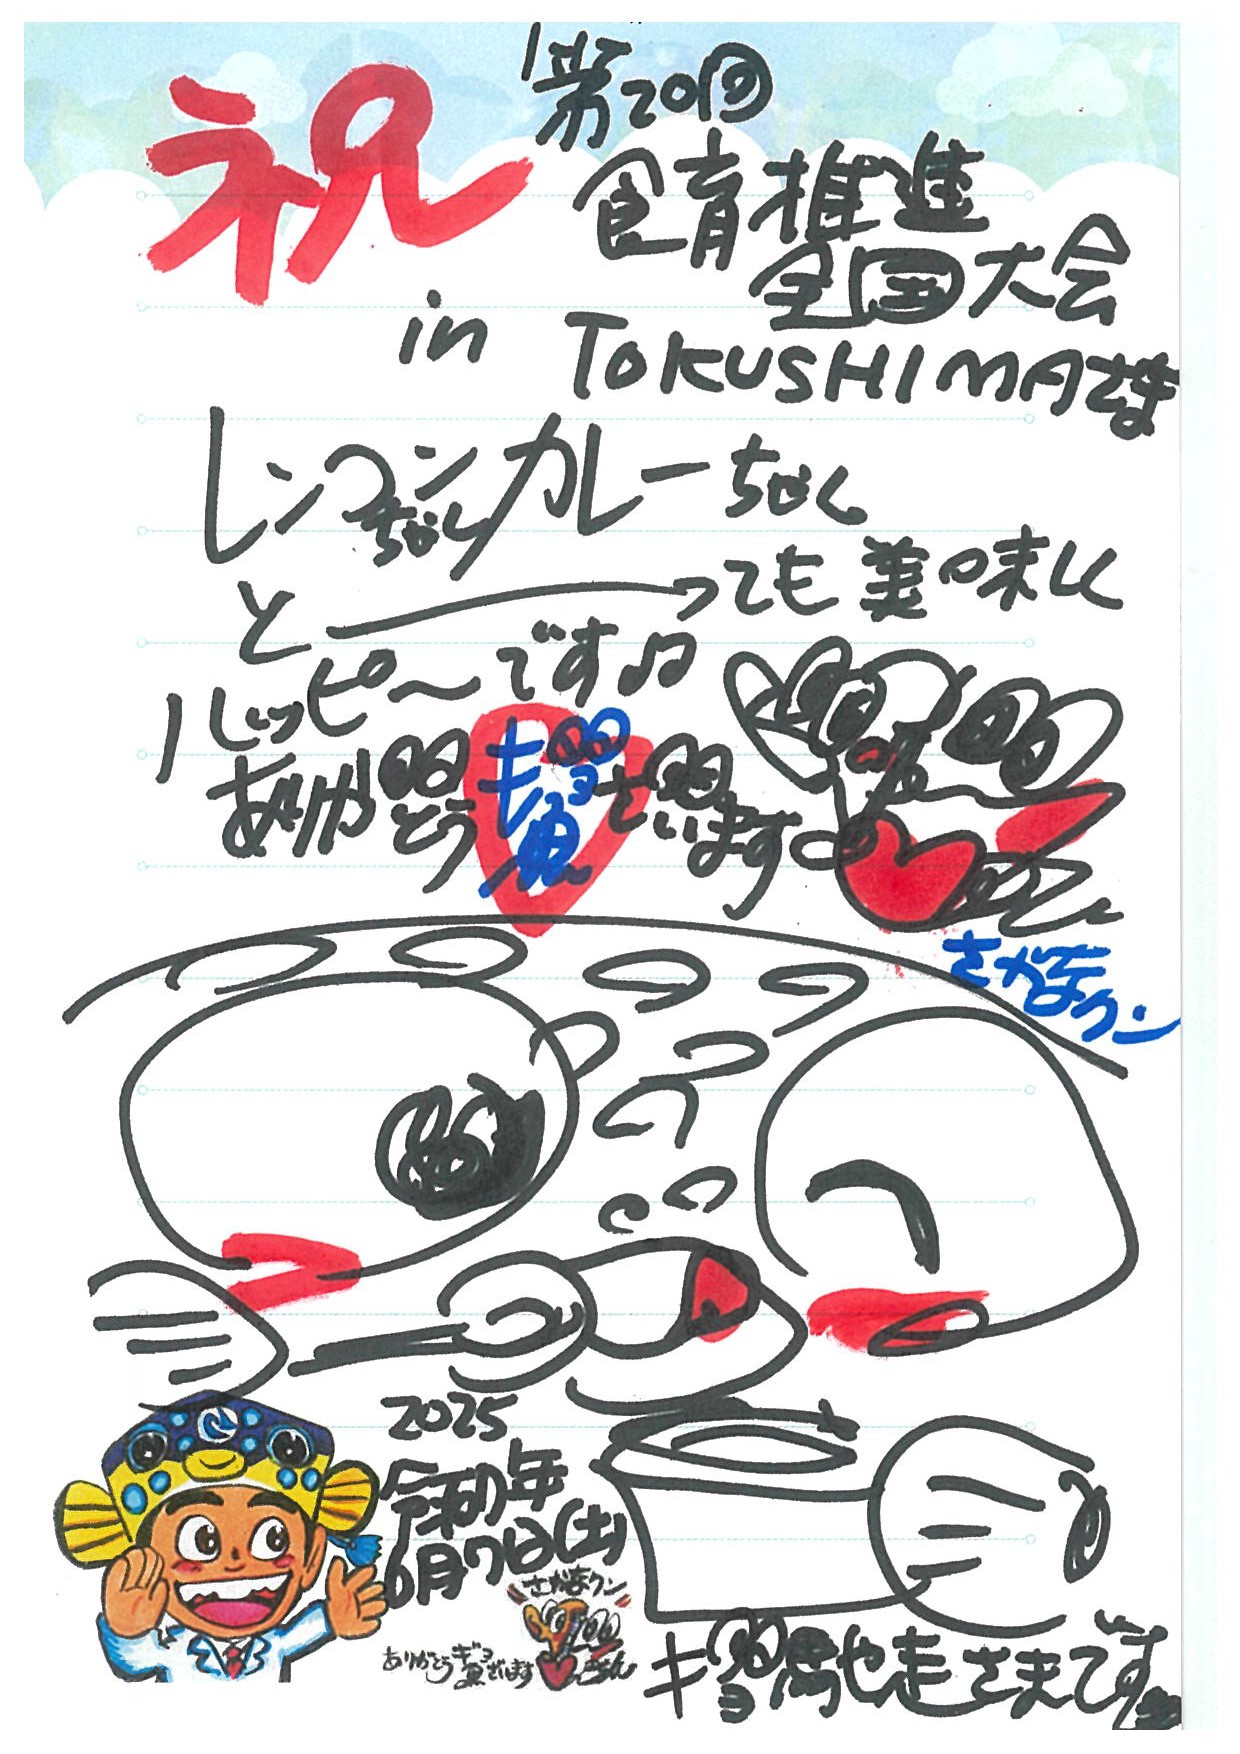 祝
第20回
食育推進
全国大会
in TOKUSHIMAさま
レンコンちゃんカレーちゃん
とーっても美味しく
ハッピ〜です♫
ありがとうギョ魚ざいます
さかなクン
2025
令和7年
6月7日(土)
さかなクン
ありがとうギョ魚ざいます
ギョ馳走さまです